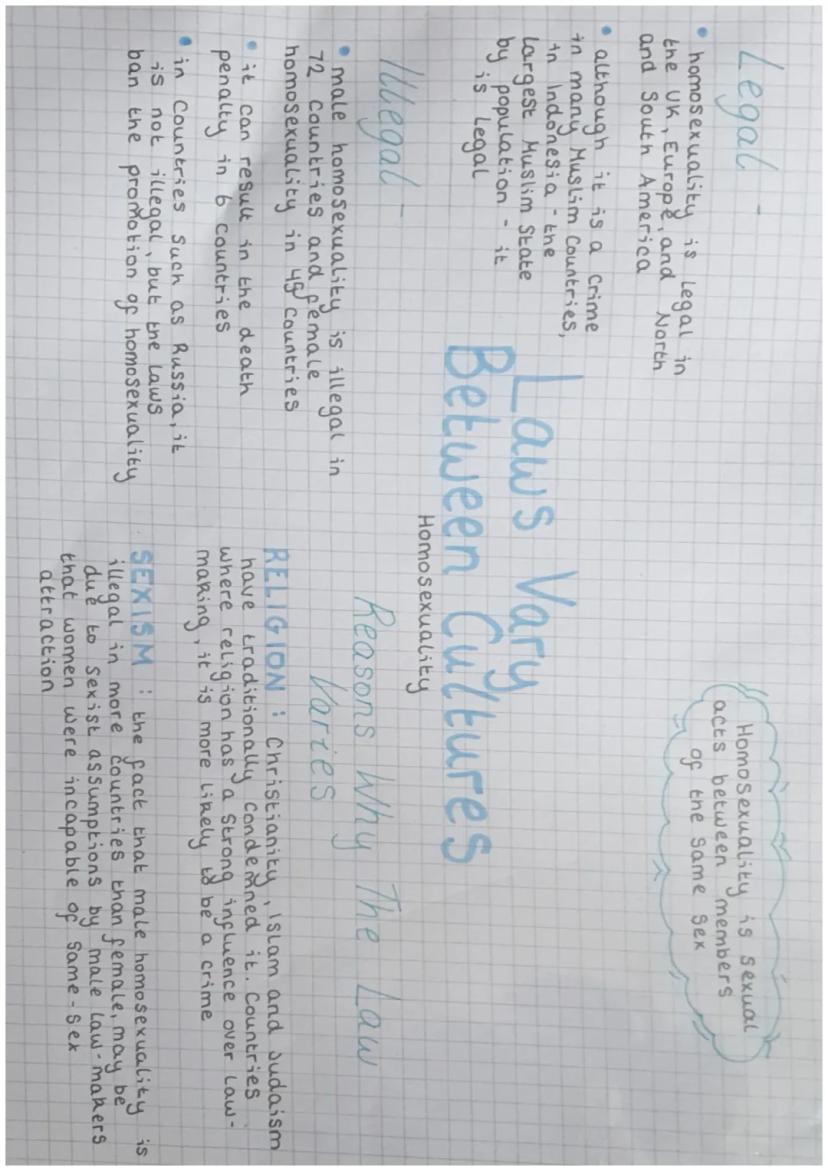 Legal -
• homosexuality is legal in
the UK, Europe, and North
and South America
• although it is a crime
in many Muslim Countries,
in Indonesia - the
largest Muslim State
by population - it
is legal
Illegal -
• male homosexuality is illegal in
72 countries and female
homosexuality in 45 Countries
• it can result in the death
penalty in 6 countries
• in Countries such as Russia, it
is not illegal, but the laws
ban the promotion of homosexuality
Laws Vary
Between Cultures
Homosexuality
Homosexuality is sexual
acts between members
of the same sex
Reasons Why The Law
Varies
RELIGION : Christianity, Islam and Judaism
have traditionally condemned it. Countries
where religion has a strong influence over law-
making, it is more likely to be a crime
SEXISM : the fact that male homosexuality is
illegal in more countries than female, may be
due to sexist assumptions by male law-makers
that women were incapable of same-sex
attraction